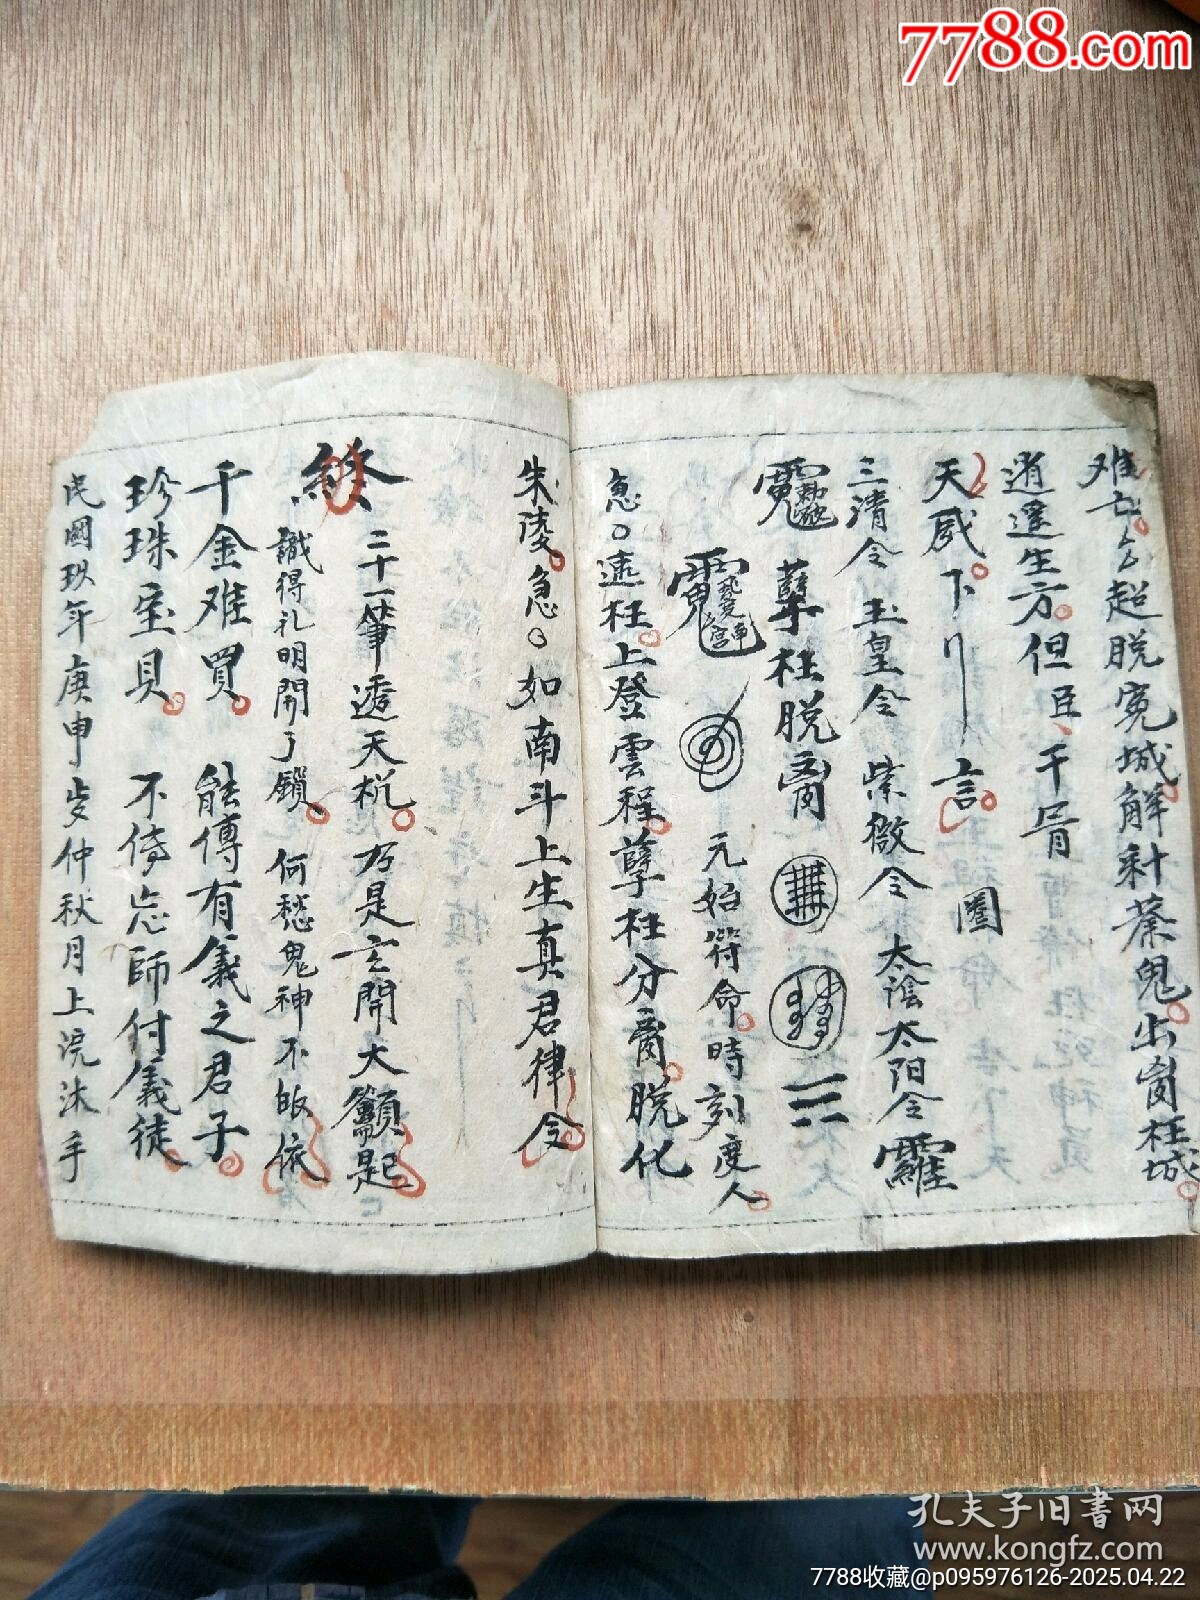 7788.com
难亡亡超脱寃城解釆蔡鬼出啇枉城
逍遥生方但臣千眉
天威下 言 圈
三清令 玉皇令 紫微令 太陰太阳令
孽枉脱啇
元始符命時刻度人
急速枉上登雲程孽枉分啇脱化
朱陵急如南斗上生真君律令
終
二十一筆透天梡乃是玄開大籲起
識得礼明開了鎖 何愁鬼神不皈依
千金难買 能傳有義之君子
珍珠宝貝 不傳忘師付義徒
民國玖年庚申岁仲秋月上浣沐手
孔夫子旧书网
www.kongfz.com
7788收藏@p095976126-2025.04.22